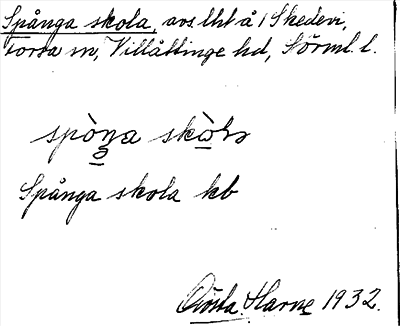 Spånga skola, avs. lht å 1 Skedevi,
Torsa sn, Villåttinge hd, Sörml. l.
spòŋa skòlə
Spånga skola kb
Gösta Harne 1932.